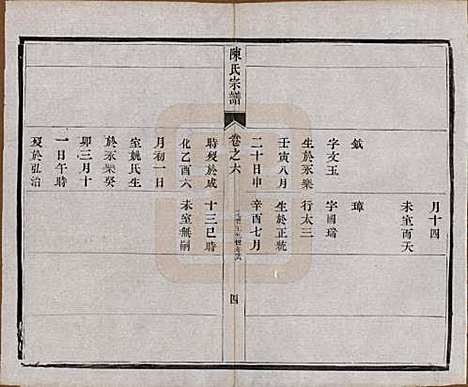 陳氏宗譜
卷之六
四
鉞
字文玉
生於永樂
壬寅八月
二十日申
時歿於成
化乙酉六
月初一日
室姚氏生
於永樂癸
卯三月十
一日午時
歿於弘治
月十四
未室而夭
璋
字國瑞
行太三
生於正統
辛酉七月
十三巳時
未室無嗣